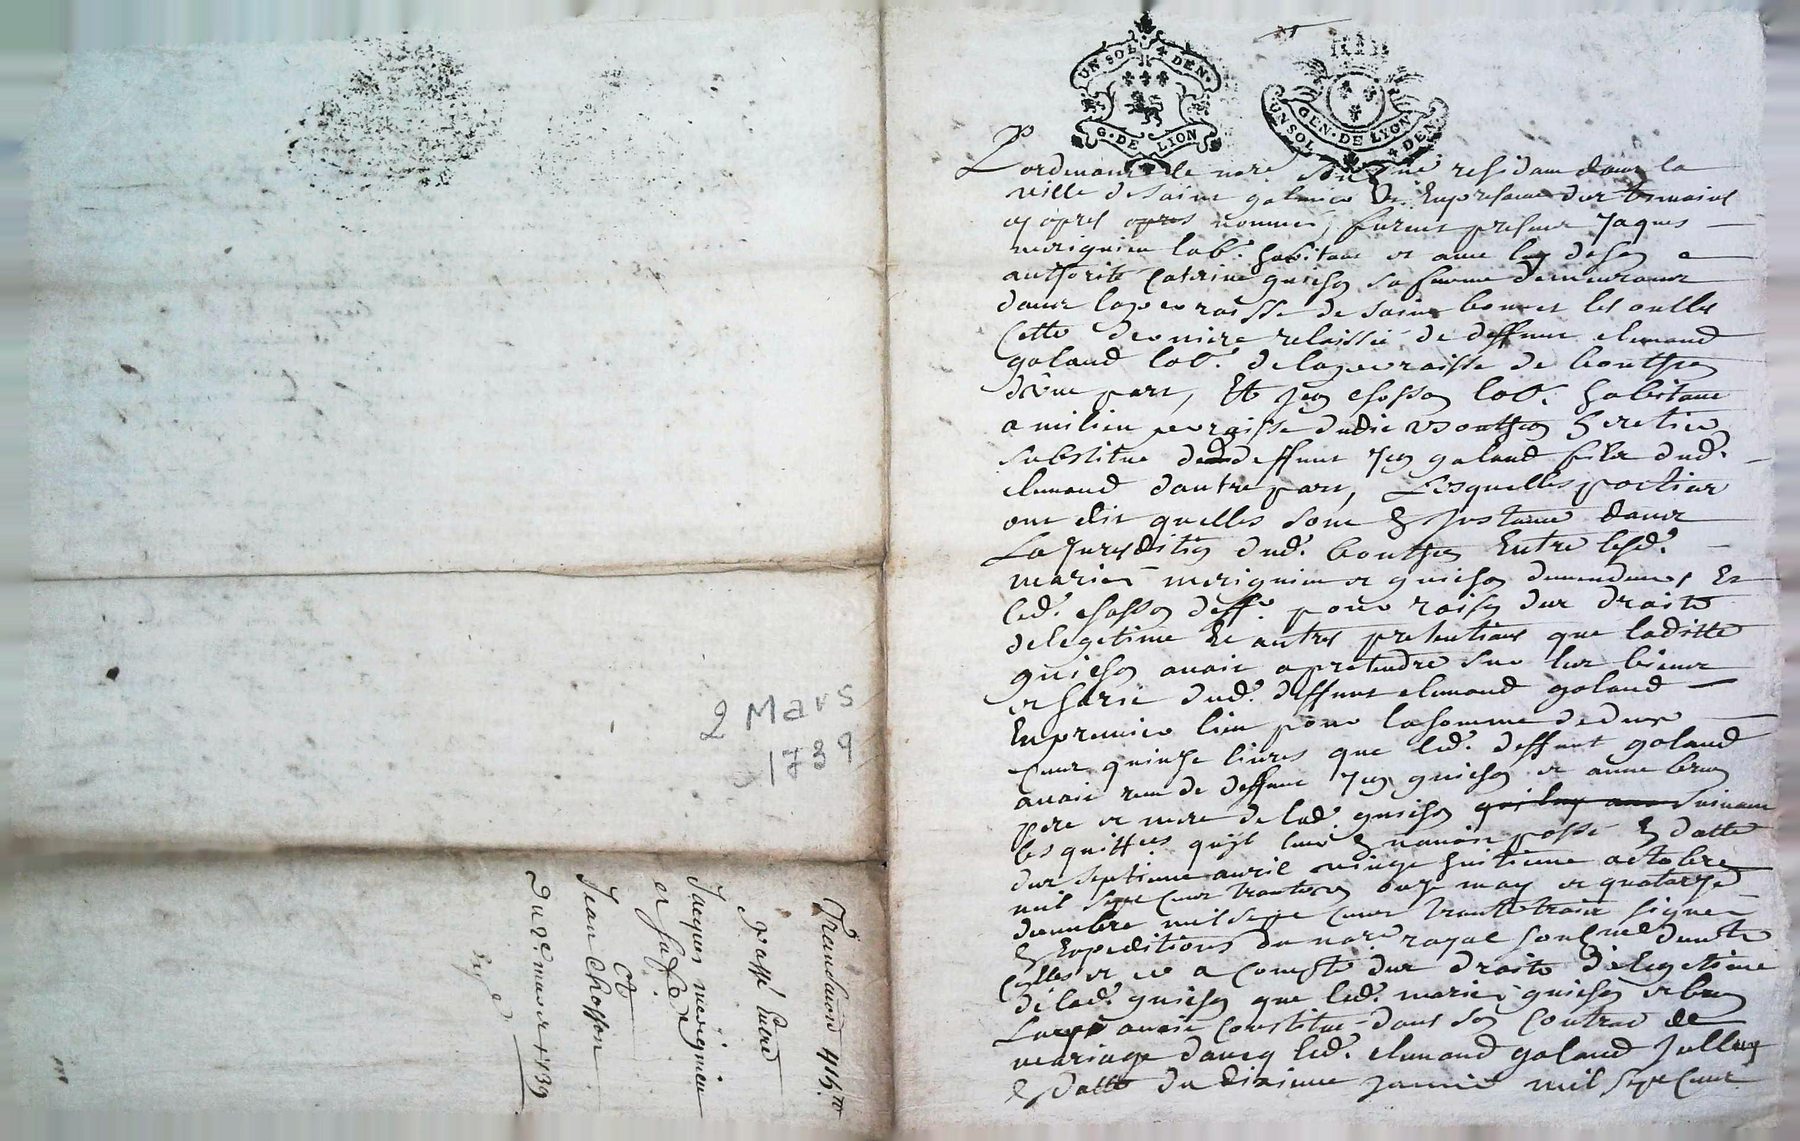 UN SOL DEN.
G. DE LYON
GEN. DE LYON
UN SOL DEN.
Pardevant le no.re soub.né residant dans la
ville de saint galmier Et En presence des temoins
cy apres apres nommés, furent presens Jaques
merignieu lab.r habitant et avec luy de son
authorité Caterine guichon sa femme demeurants
dans la parroisse de saint bonnet les oulles
Cette derniere relaissée de deffunt clemand
galand lab.r de la parroisse de bouthon
d'une part, Et Jean chosson lab.r habitant
a milieu parroisse dudit bouthon heretier
substitué de deffunt Jean galand fils dud.
clemand dautre part, Lesquelles parties
ont dit quelles sont en Instance dans
La Jurisdition dud. bouthon Entre lesd.
mariés merignieu et guichon demendeurs Et
led. chosson deff.r pour raison des droits
de legetime Et autres pretentions que laditte
guichon avait a pretendre sur les biens
et hoirie dud. deffunt clemand galand
En premier lieu pour la somme de deux
Cent quinze livres que led. deffunt galand
avait reçu de deffunt Jean guichon et anne brun
pere et mere de lad. guichon suivant
les quittces qu'il leur en avoit passé en datte
des septieme avril vingt huitieme octobre
mil sept Cent trante onze may et quatorze
decembre mil sept Cent trante trois signé
En Expeditions du no.re royal soub.né
et ce a Compte des droits de legetime
de lad. guichon que led. mariés guichon et brun
Luy avait Constitué dans son Contrat de
mariage avecq led. clemand galand
En datte du dixieme Janvier mil sept Cent
2 Mars
1739
Transaction
passé Entre
Jacques merignieu
et sa fe.
Et
Jean Chosson
Du 2.e mars 1739